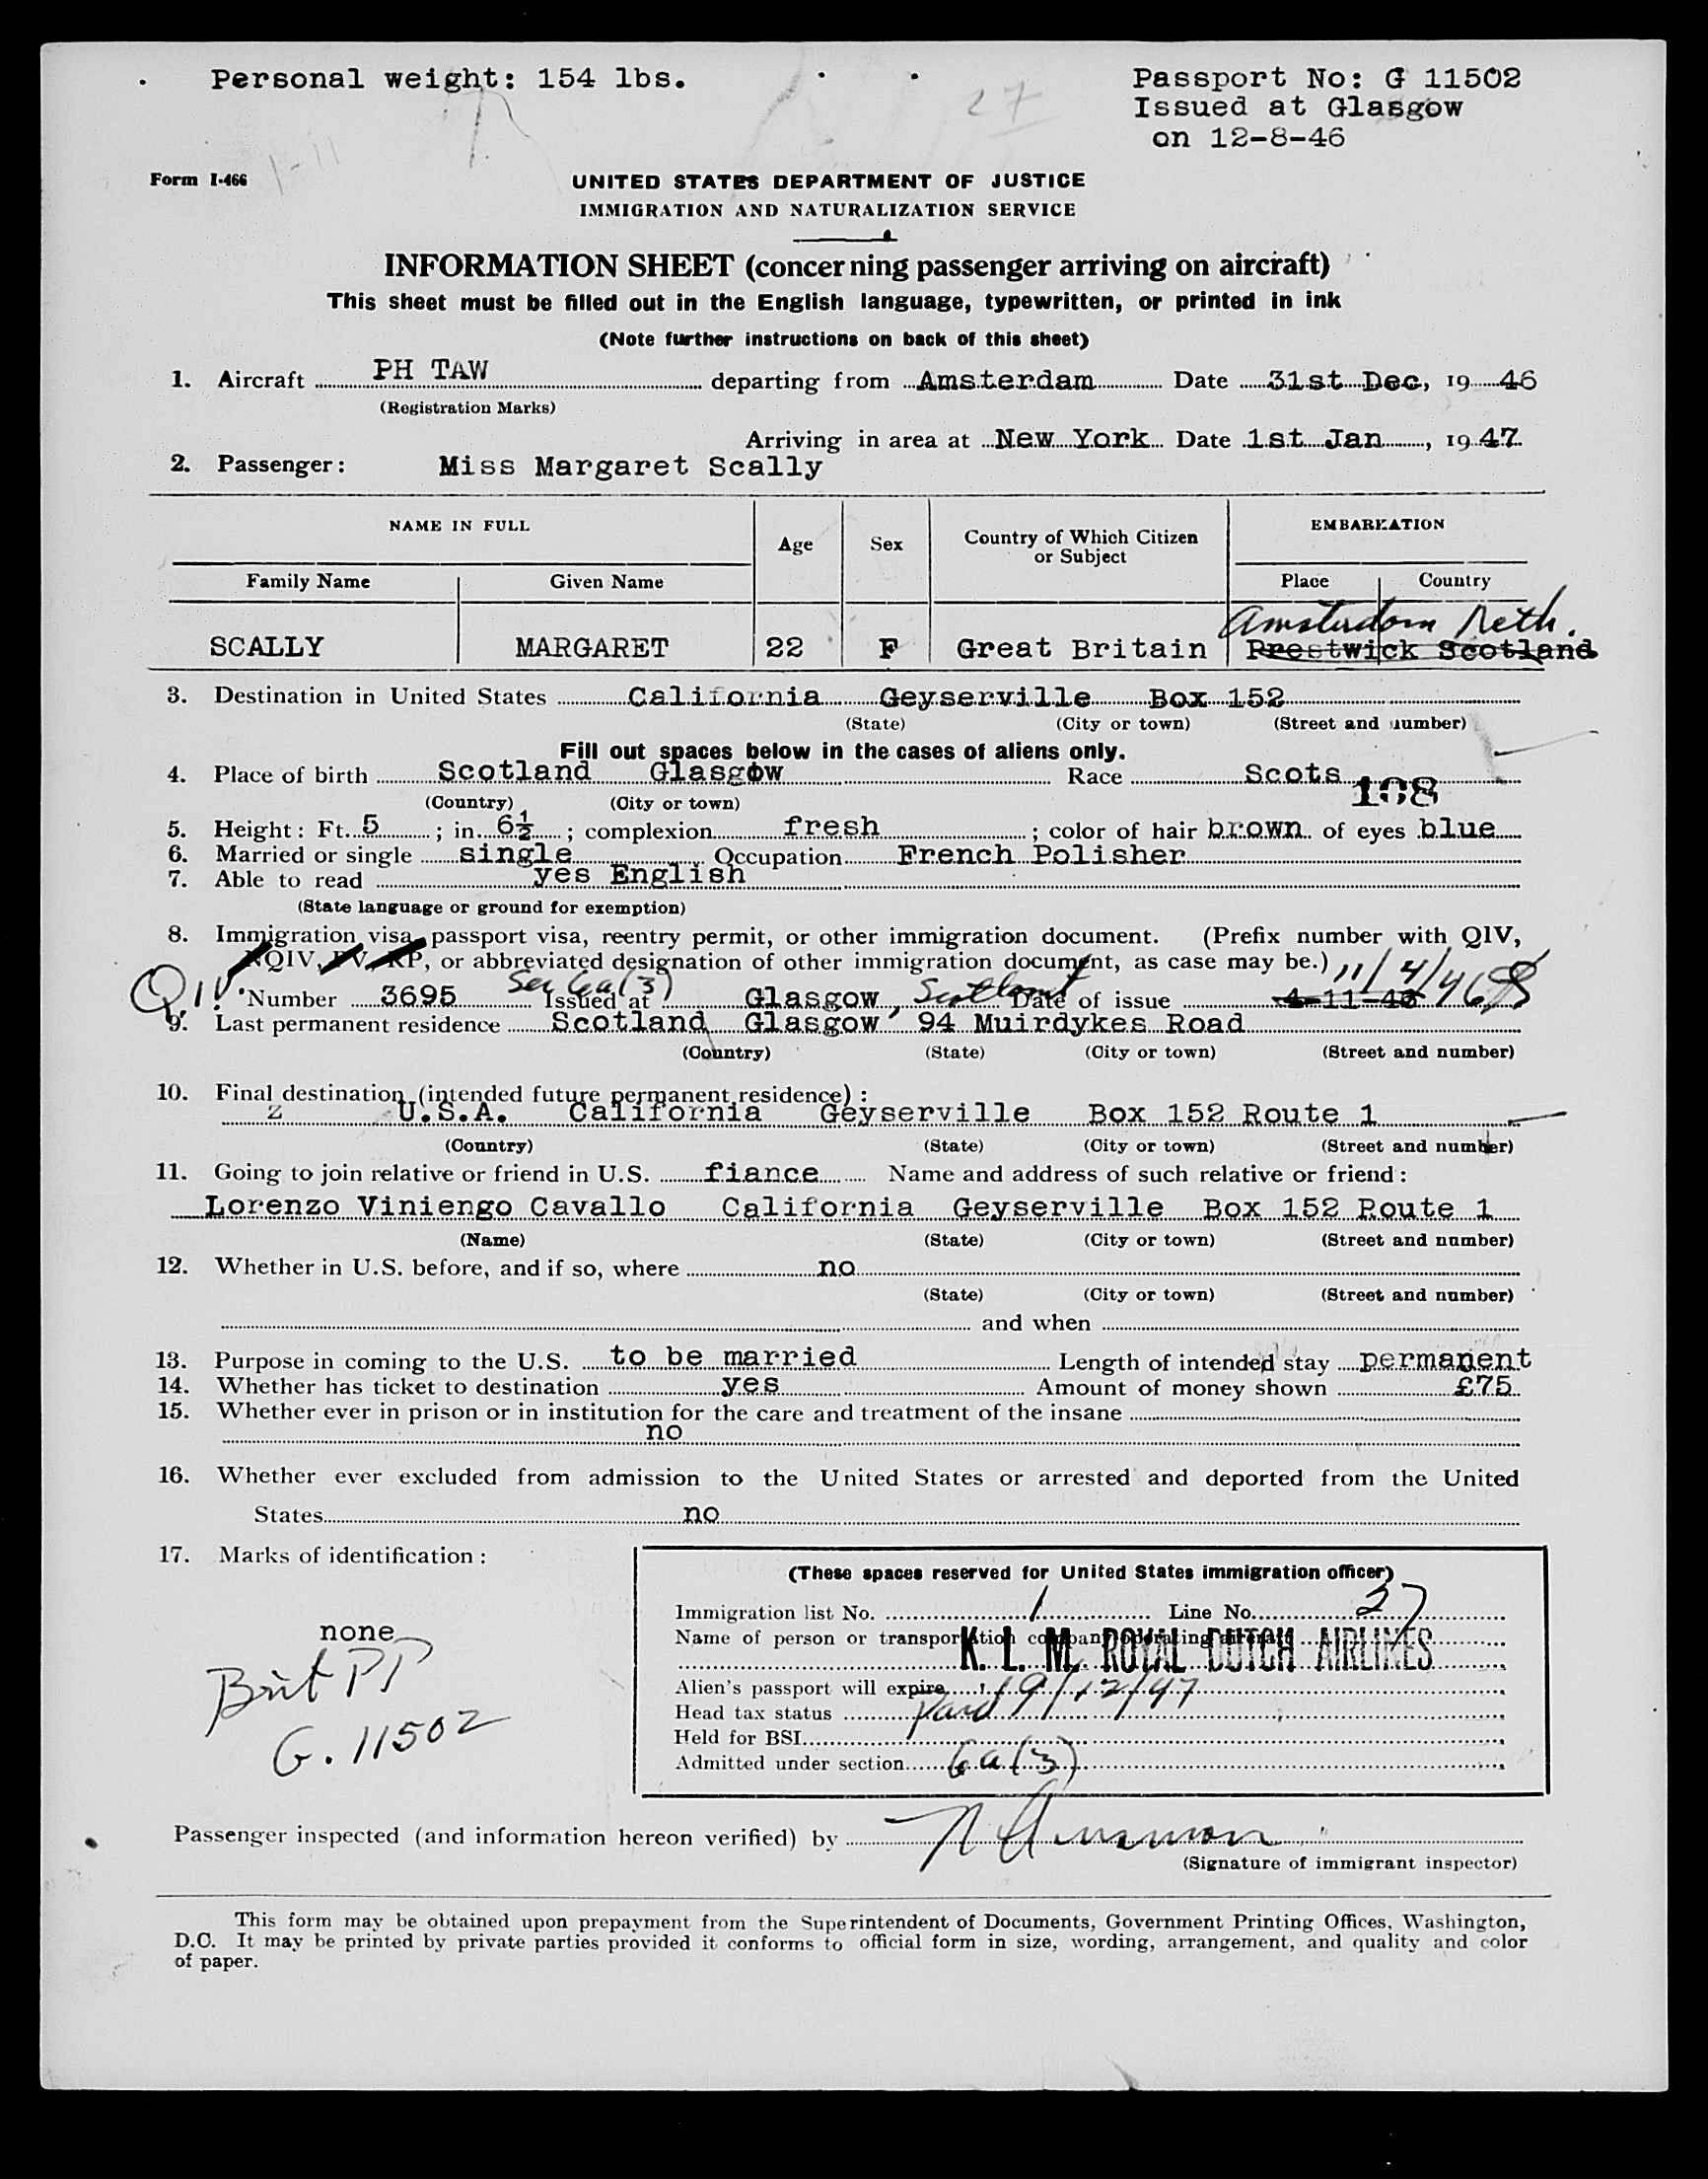 Personal weight: 154 lbs.
27
Passport No: G 11502
Issued at Glasgow
on 12-8-46
1-11
Form I-466
UNITED STATES DEPARTMENT OF JUSTICE
IMMIGRATION AND NATURALIZATION SERVICE
INFORMATION SHEET (concerning passenger arriving on aircraft)
This sheet must be filled out in the English language, typewritten, or printed in ink
(Note further instructions on back of this sheet)
1. Aircraft PH TAW departing from Amsterdam Date 31st Dec, 19 46
(Registration Marks)
Arriving in area at New York Date 1st Jan, 19 47
2. Passenger: Miss Margaret Scally
NAME IN FULL Age Sex Country of Which Citizen or Subject EMBARKATION
Family Name Given Name Place Country
Amsterdam Neth.
SCALLY MARGARET 22 F Great Britain Prestwick Scotland
3. Destination in United States California Geyserville Box 152
(State) (City or town) (Street and number)
Fill out spaces below in the cases of aliens only.
4. Place of birth Scotland Glasgow Race Scots
(Country) (City or town) 108
5. Height: Ft. 5 ; in. 6½ ; complexion fresh ; color of hair brown of eyes blue
6. Married or single single Occupation French Polisher
7. Able to read yes English
(State language or ground for exemption)
8. Immigration visa, passport visa, reentry permit, or other immigration document. (Prefix number with QIV,
NQIV, PV, RP, or abbreviated designation of other immigration document, as case may be.) 11/4/46
QIV. Number 3695 Sec 6a(3) Issued at Glasgow Scotland Date of issue 4-11-46
9. Last permanent residence Scotland Glasgow 94 Muirdykes Road
(Country) (State) (City or town) (Street and number)
10. Final destination (intended future permanent residence) :
U.S.A. California Geyserville Box 152 Route 1
(Country) (State) (City or town) (Street and number)
11. Going to join relative or friend in U.S. fiance Name and address of such relative or friend :
Lorenzo Viniengo Cavallo California Geyserville Box 152 Route 1
(Name) (State) (City or town) (Street and number)
12. Whether in U.S. before, and if so, where no
(State) (City or town) (Street and number)
and when
13. Purpose in coming to the U.S. to be married Length of intended stay permanent
14. Whether has ticket to destination yes Amount of money shown £75
15. Whether ever in prison or in institution for the care and treatment of the insane
no
16. Whether ever excluded from admission to the United States or arrested and deported from the United
States no
17. Marks of identification :
none
Brit PP
G. 11502
(These spaces reserved for United States immigration officer)
Immigration list No. 1 Line No. 27
Name of person or transportation company operating aircraft
K. L. M. ROYAL DUTCH AIRLINES
Alien's passport will expire 9/12/47
Head tax status Paid
Held for BSI
Admitted under section 6a(3)
Passenger inspected (and information hereon verified) by
(Signature of immigrant inspector)
This form may be obtained upon prepayment from the Superintendent of Documents, Government Printing Offices, Washington,
D.C. It may be printed by private parties provided it conforms to official form in size, wording, arrangement, and quality and color
of paper.